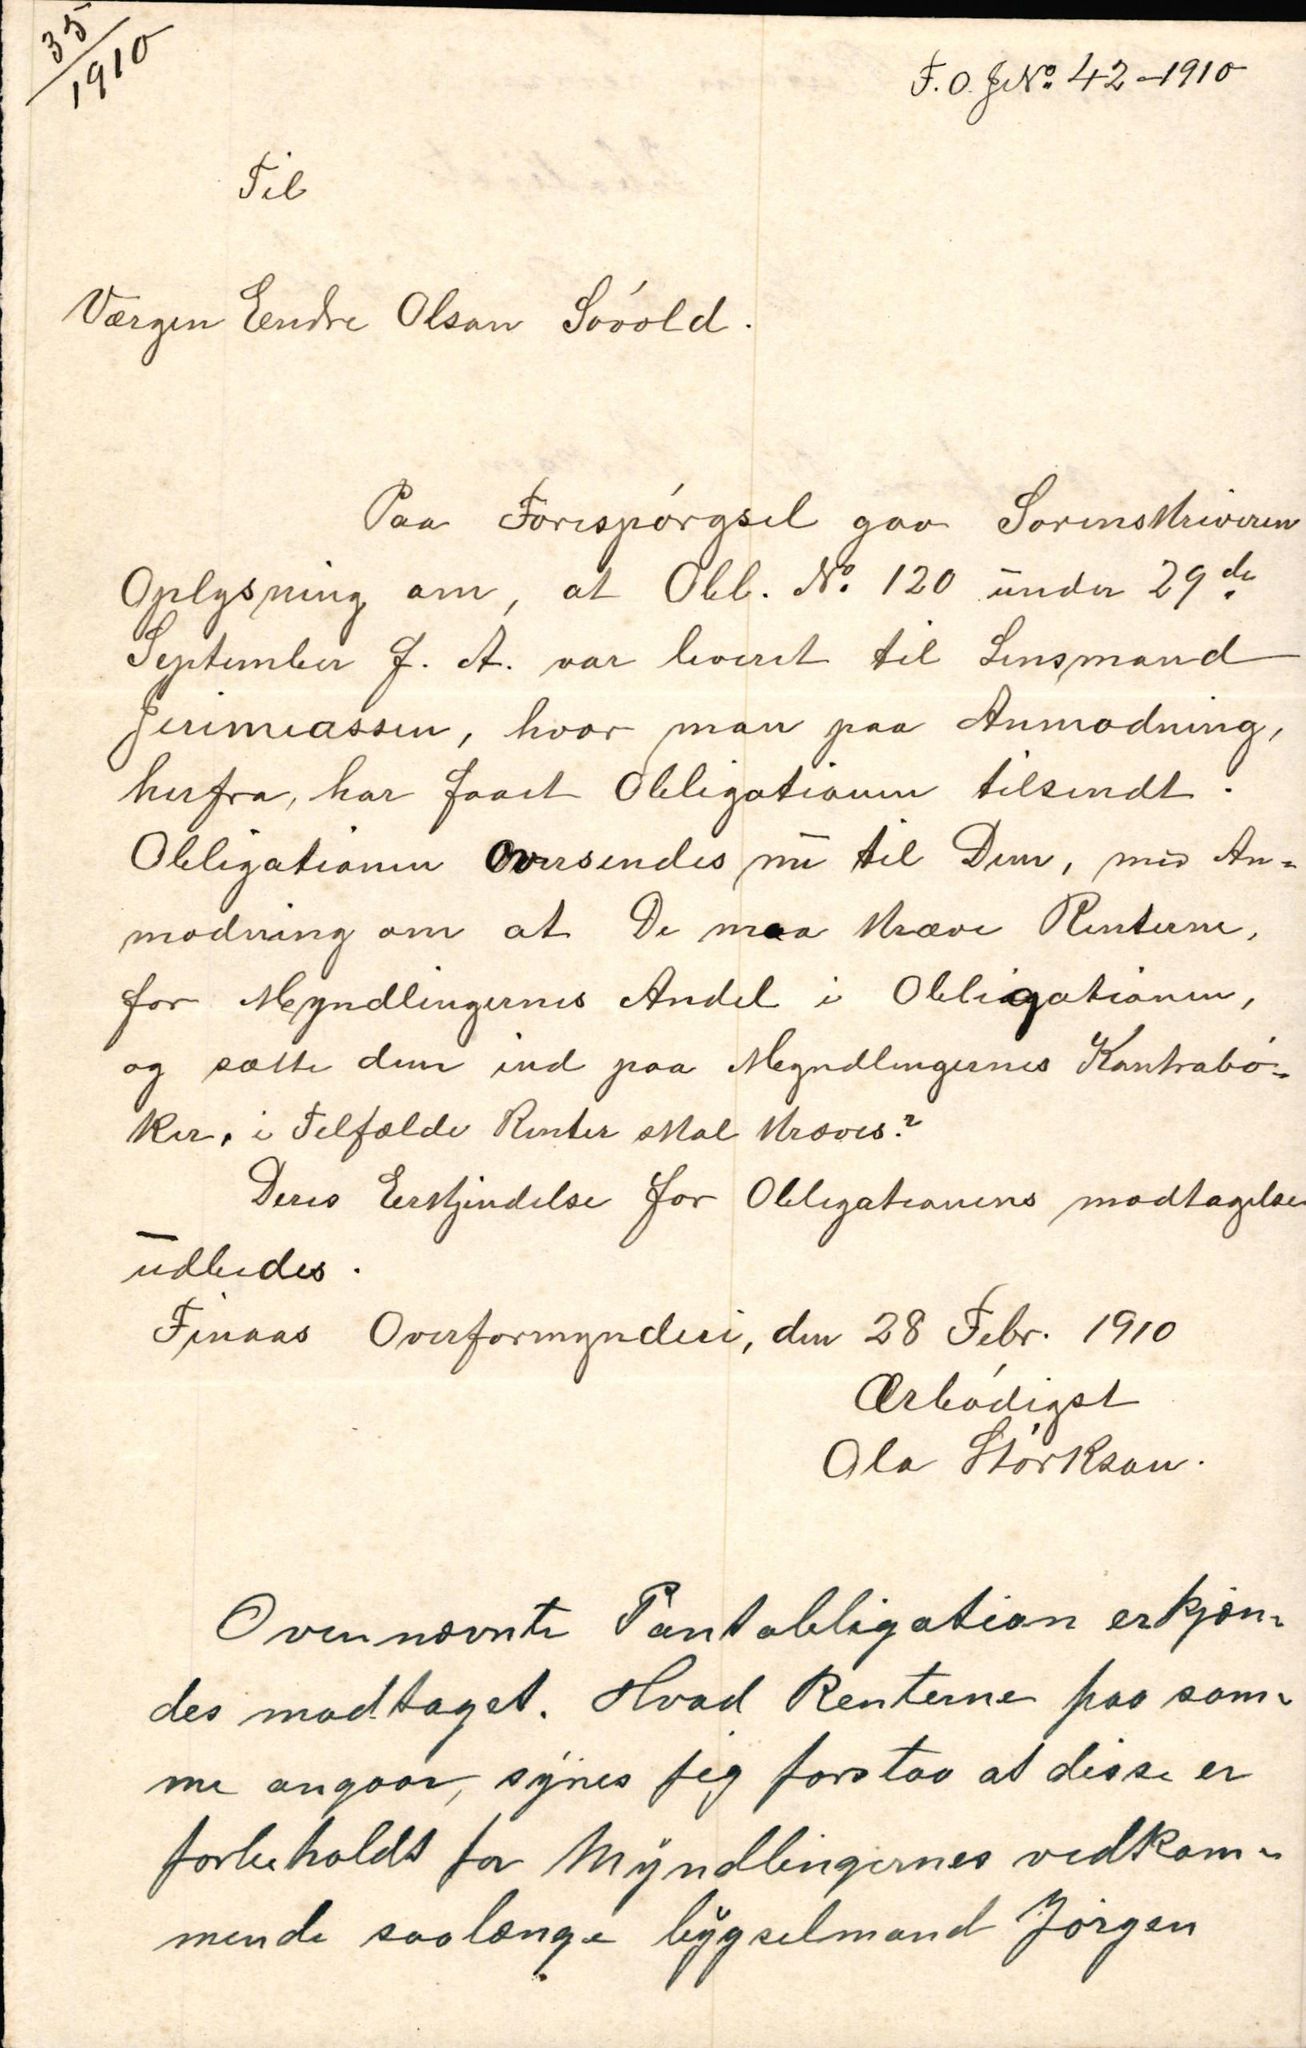 35
1910
F. O. J No. 42 - 1910
Til
Værgen Eendre Olson Sövold.
Paa Forespörgsel gav Sorenskriveren
Oplysning om, at Obl. No. 120 under 29de
September f. A. var leveret til Lensmand
Jerimiassen, hvor man paa Anmodning,
herfra, har faaet Obligationen tilsendt.
Obligationen oversendes nu til Dem, med An=
modning om at De maa kræve Renterne,
for Myndlingernes Andel i Obligationen,
og sætte dem ind paa Myndlingernes Kontrabö=
ker, i Tilfælde Renter skal kræves?
Deres Eerkjendelse for Obligationens modtagelse
udbedes.
Finaas Overformynderi, den 28 Febr. 1910
Ærbödigst
Ola Störkson.
Ovennævnte Pantobligation erkjen=
des modtaget. Hvad Renterne paa sam=
me angaar, synes jeg forstaa at disse er
forbeholdt for Myndlingernes vedkom=
mende saalænge bygselmand Jörgen